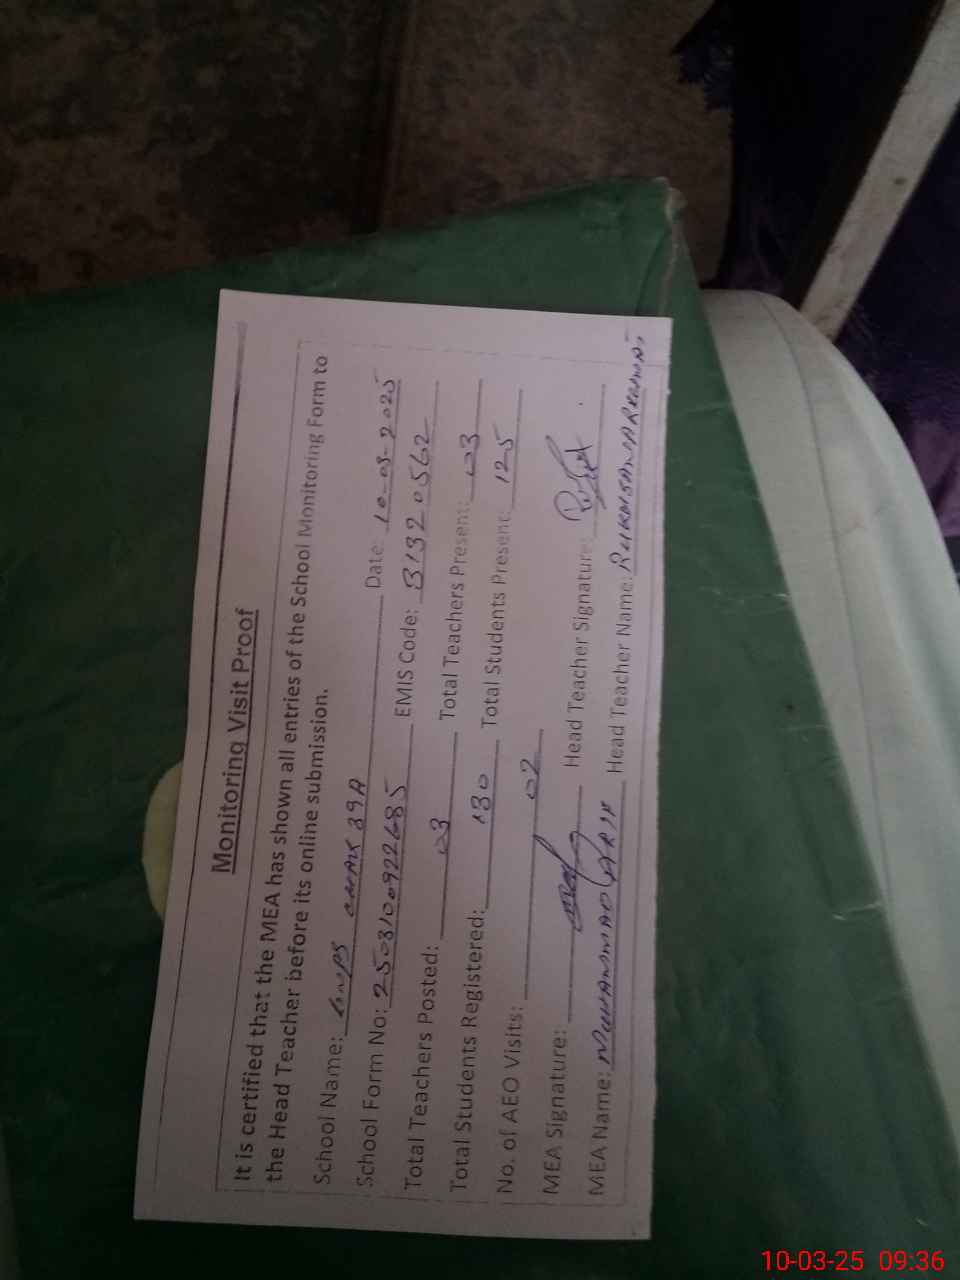 Monitoring Visit Proof
It is certified that the MEA has shown all entries of the School Monitoring Form to
the Head Teacher before its online submission.
School Name: GMPS CHAK 39A Date: 10-03-2025
School Form No: 2503100922685 EMIS Code: 31320562
Total Teachers Posted: 03 Total Teachers Present: 03
Total Students Registered: 130 Total Students Present: 125
No. of AEO Visits: 02
MEA Signature: Head Teacher Signature:
MEA Name: MUHAMMAD ARIF Head Teacher Name:
10-03-25 09:36